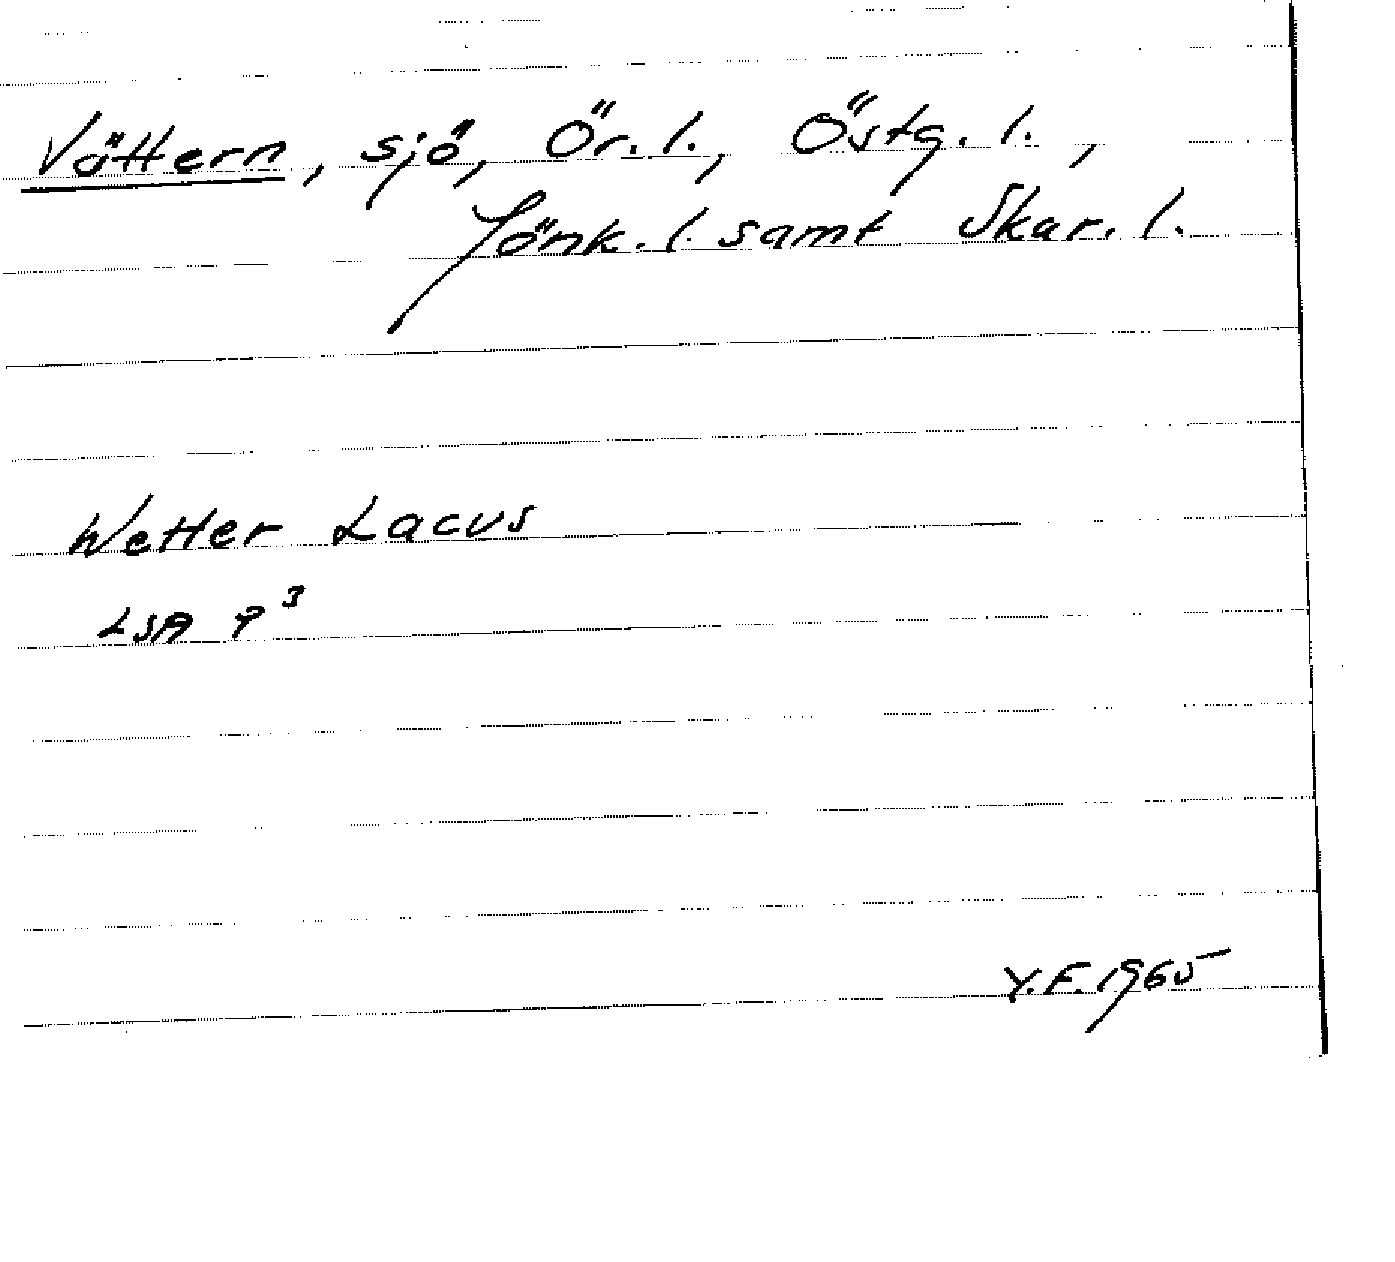 Vättern, sjö, Ör. l., Östg. l.,
Jönk. l. samt Skar. l.
Wetter Lacus
LSA P³
Y.F. 1965